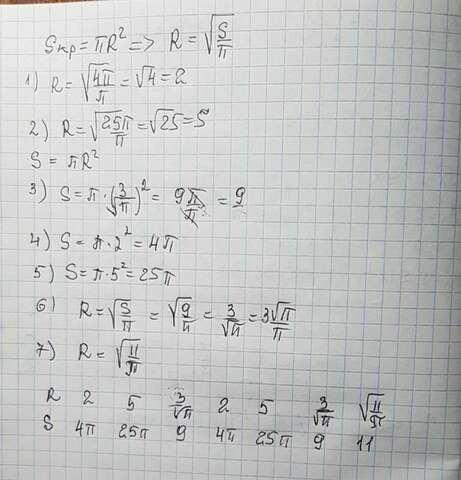 Sкр = πR² => R = √(S/π)
1) R = √(4π/π) = √4 = 2
2) R = √(25π/π) = √25 = 5
S = πR²
3) S = π · (3/√π)² = 9π/π = 9
4) S = π · 2² = 4π
5) S = π · 5² = 25π
6) R = √(S/π) = √(9/π) = 3/√π = 3√π/π
7) R = √(11/π)
R 2 5 3/√π 2 5 3/√π √(11/π)
S 4π 25π 9 4π 25π 9 11